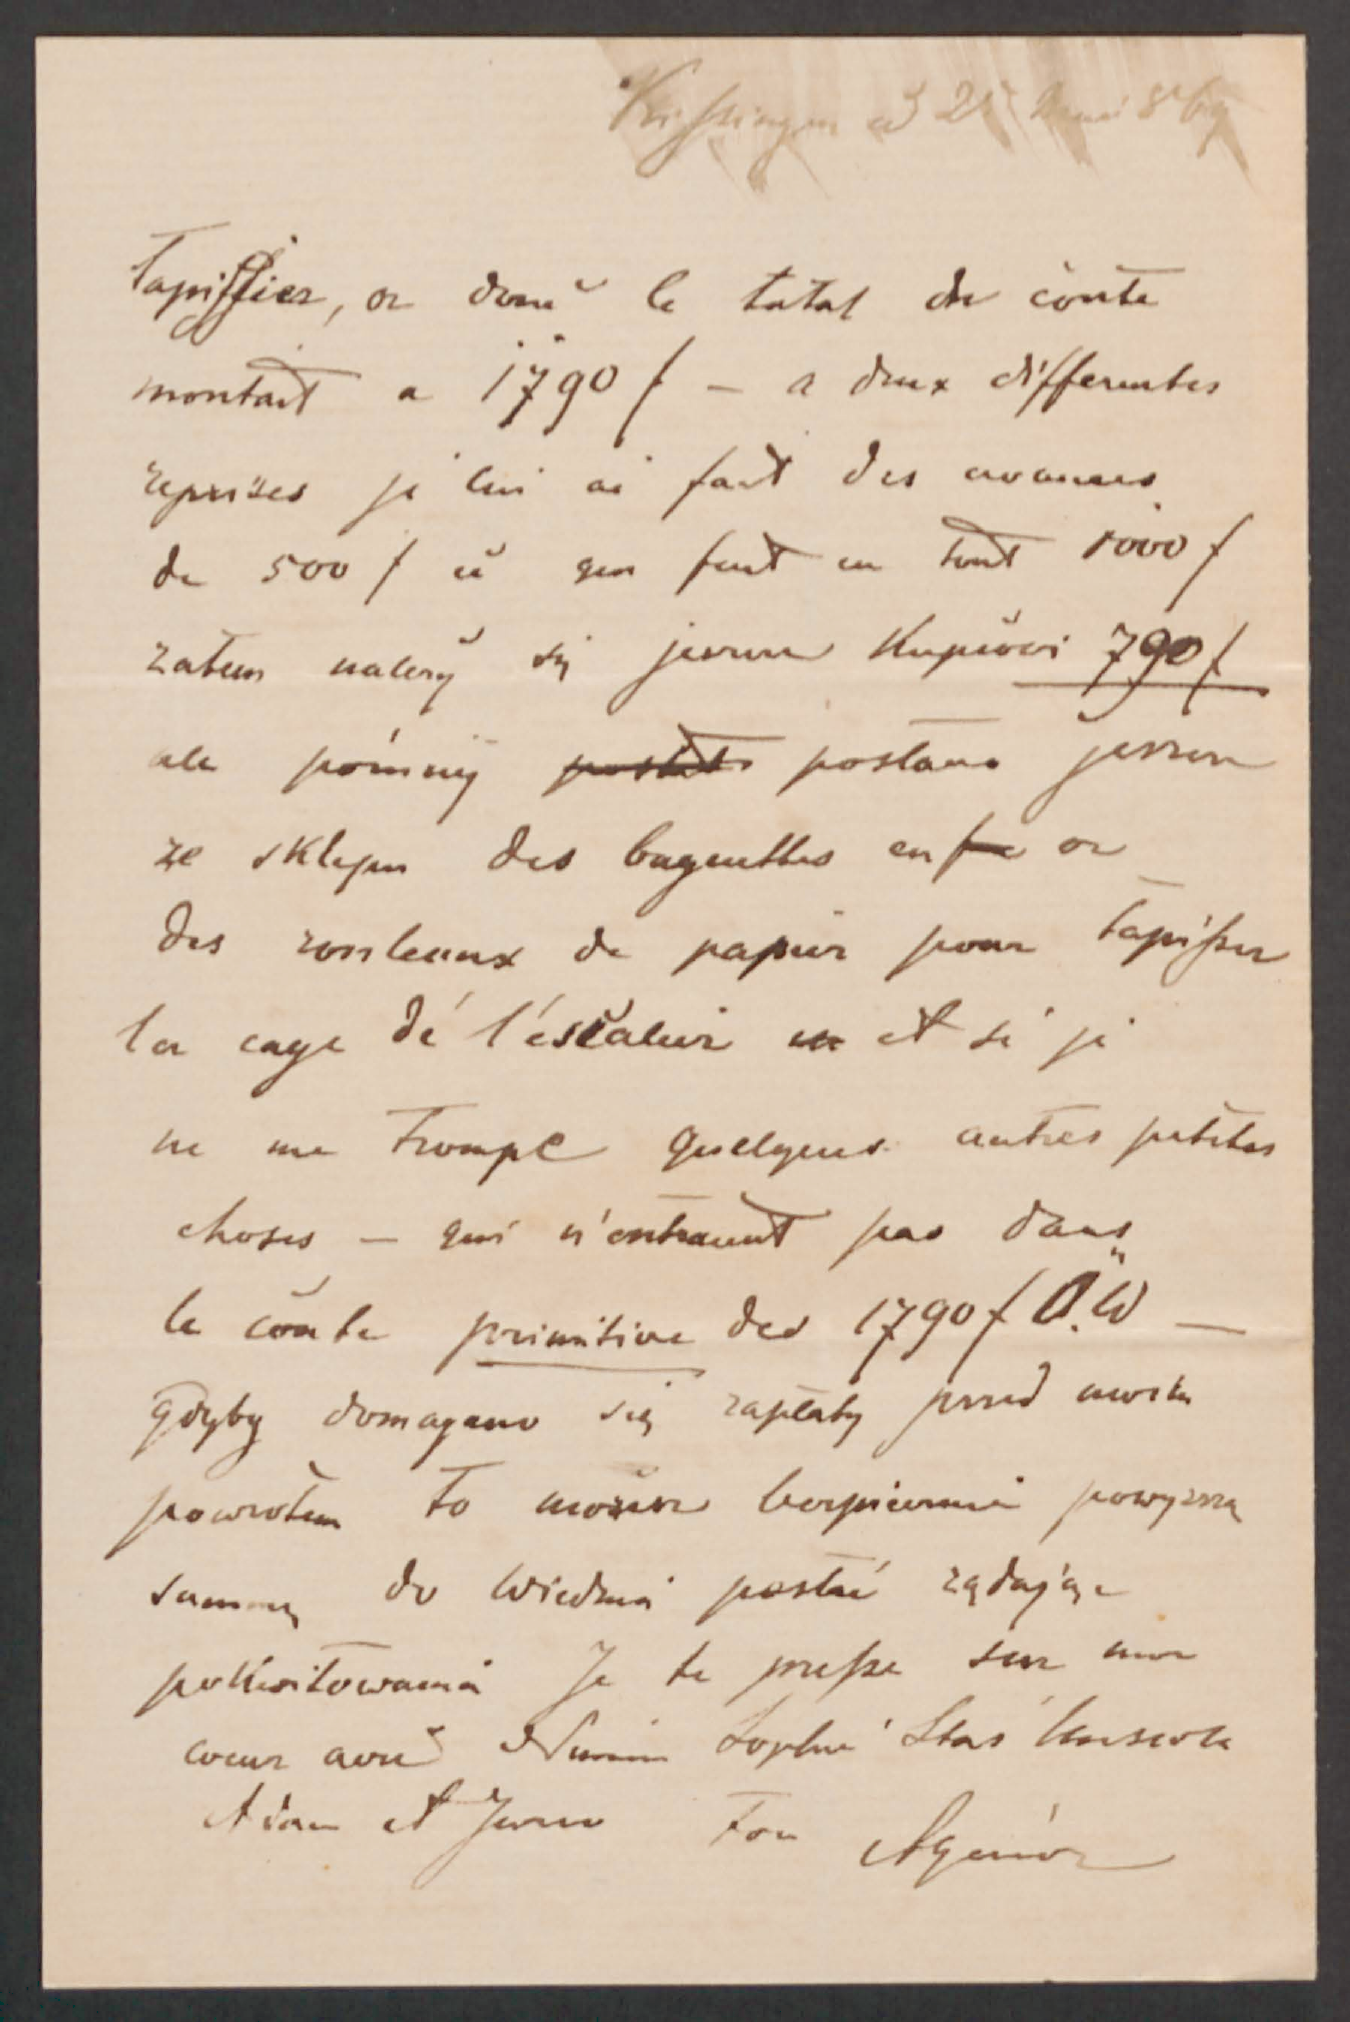 Kissingen d 25 Mai 869
Tapissier, or donc le total du conte
montait a 1790 f – a deux differentes
reprises je lui ai fait des avances
de 500 f ce qui fait en tout 1000 f
zatem należy się jeszcze Kupcowi 790 f
ale później postano jeszcze
ze sklepu des baguettes en or
des rouleaux de papier pour tapisser
la cage dé l'éscalier et si je
ne me trompe quelques autres petites
choses – qui n'entraient pas dans
le conte primitive des 1790 f Ö.W –
gdyby domagano się zapłaty przed moim
powrotem to możesz bezpiecznie powyższą
summę do Wiednia postać rządając
pokwitowania Je te presse sur mon
coeur avec Sophie Stas
Adam et Ton Agenór